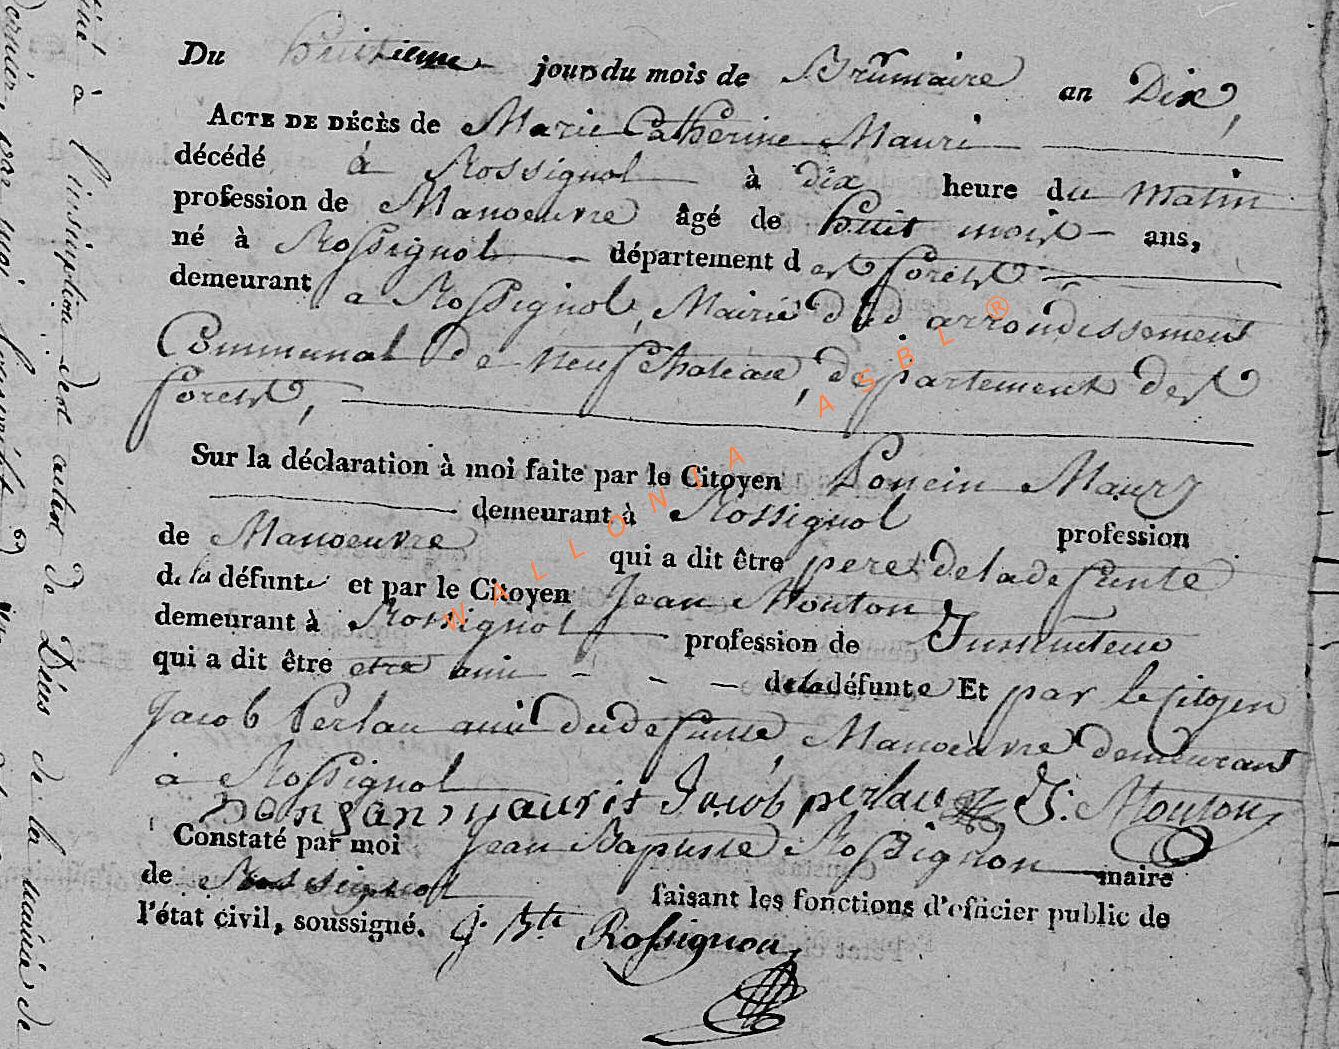 Du huitieme jour du mois de Brumaire an Dix,
ACTE DE DÉCÈS de Marie Catherine Mauri
décédé à Rossignol à dix heure du matin
profession de Manoeuvre âgé de huit mois ans,
né à Rossignol département des forêts
demeurant a Rossignol, Mairie dud arrondissement
Communal de neufchateau, departement des
forets,
Sur la déclaration à moi faite par le Citoyen Poncin Maury
demeurant à Rossignol profession
de Manoeuvre qui a dit être pere de la defunte
de la défunte et par le Citoyen Jean Mouton
demeurant à Rossignol profession de Instituteur
qui a dit être etre ami de la défunte Et par le Citoyen
Jacob Perlau ami dud defunte Manoeuvre demeurant
à Rossignol
mauris Jacob perlau J: Mouton
Constaté par moi Jean Baptiste Rossignon maire
de Rossignol faisant les fonctions d'officier public de
l'état civil, soussigné. J. Bte Rossignon
WALLONIA ASBL ®
à l'inscription des actes de Décès de la mairie de